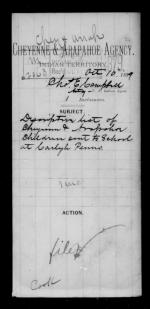 Chey & Arrah
CHEYENNE & ARAPAHOE AGENCY,
INDIAN TERRITORY,
Oct 10" 1879
Chas E Campbell
Actg
Inclosures.
SUBJECT.
Descriptive list of
Cheyenne & Arapahoe
Children sent to School
at Carlysle Penna.
ACTION.
file
Cook